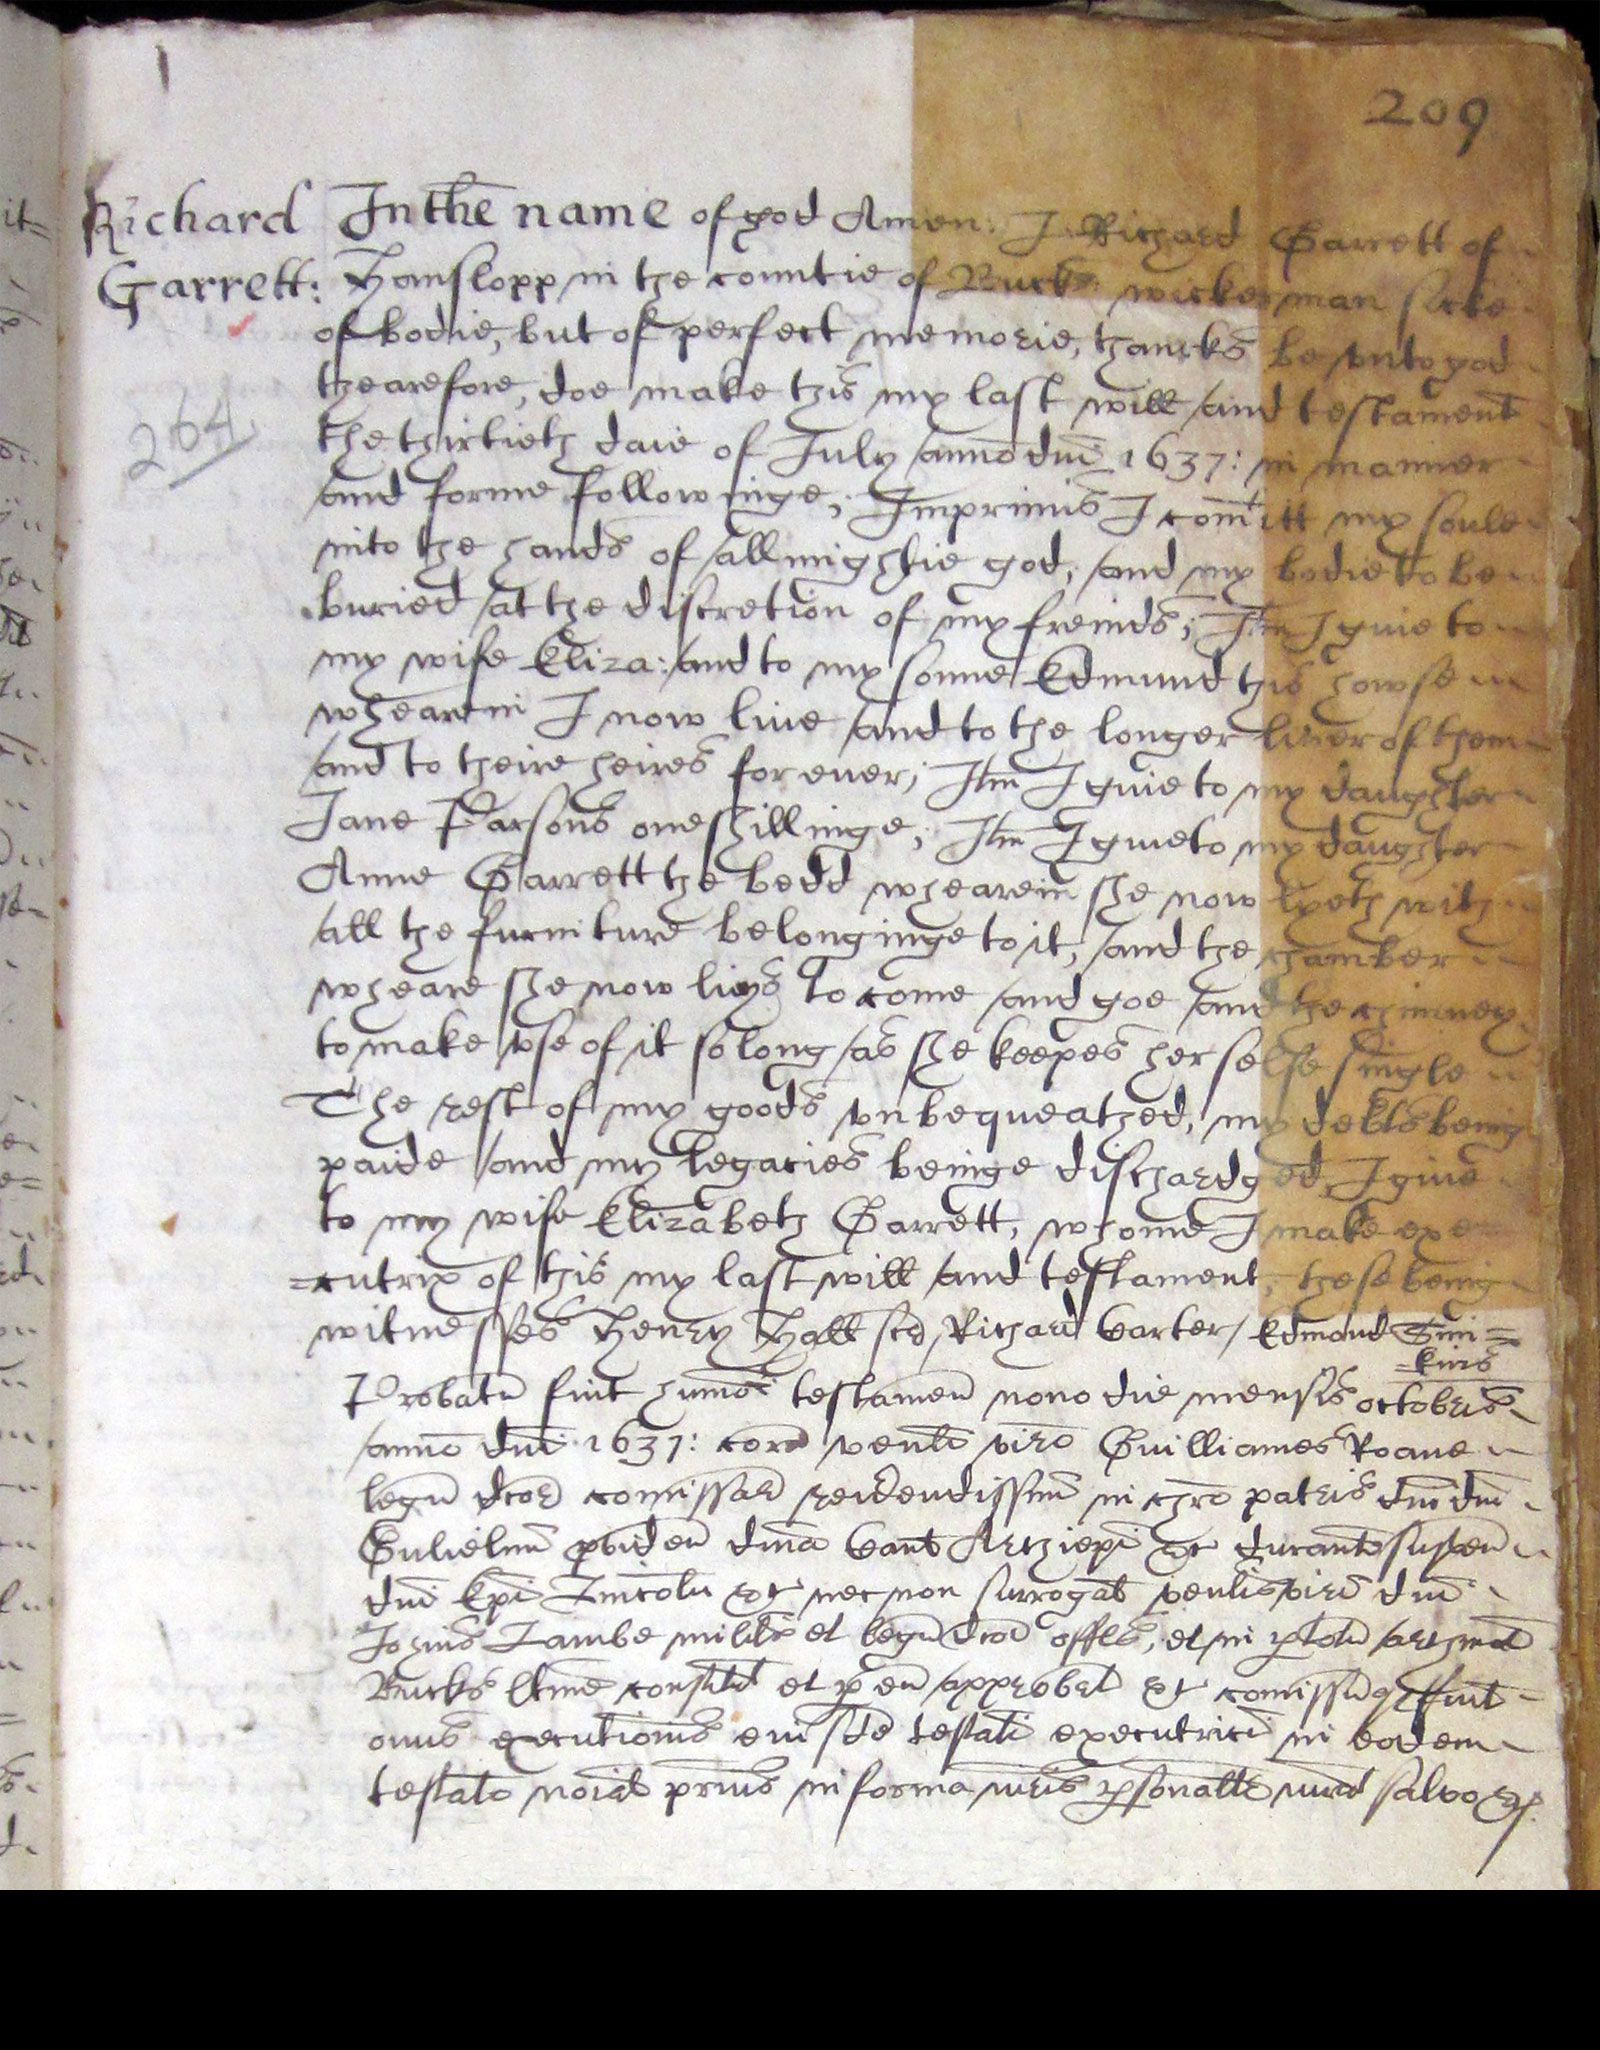 209
Richard
Garrett:
264
In the name of god Amen: I Richard Garrett of
Hanslopp in the countie of Buck: wickerman sicke
of bodie, but of perfect memorie, thanckes be vnto god
thearefore, doe make this my last will and testament
the thirtieth daie of July anno dni 1637: in manner
and forme followinge; Imprimis I comitt my soule
into the hands of allmightie god, and my bodie to be
buried at the discretion of my freinds; Itm I giue to
my wife Eliza: and to my sonne Edmund this howse
whearein I now liue and to the longer liuer of them
and to theire heires for euer; Itm I giue to my daughter
Jane Parsons one shillinge; Itm I giue to my daughter
Anne Garrett the bedd whearein she now lyeth with
all the furniture belonginge to it, and the chamber
wheare she now lieys to come and goe and the chimney
to make vse of it so long as she keepes her selfe single
The rest of my goods vnbequeathed, my debts being
paide and my legacies beinge dischardged, I giue
to my wife Elizabeth Garrett, whome I make exe
=cutrix of this my last will and testament; these being
witnesses Henry Hall scr, Richard Carter, Edmond Sim=
=kins
Probatu fuit humoi testamen nono die mensis octobris
anno dni 1637: cora venli viro Guilliames Roane
legu dcore comissar reverendissim in chro patris dni dni
Gulielmi pviden dina Cant Archiepi &c durante suspen
dni Epi Lincoln &c necnon surrogat venlis viri dni
Johnis Lambe militis et legu dcor offlis, et in p totu archinat
Bucks ltime constitut et p eu approbat &c comissuq fuit
onus executionis eiusde testati executrici in eodem
testato noiat prius in forma iuris psonalr iurat salvo &c.